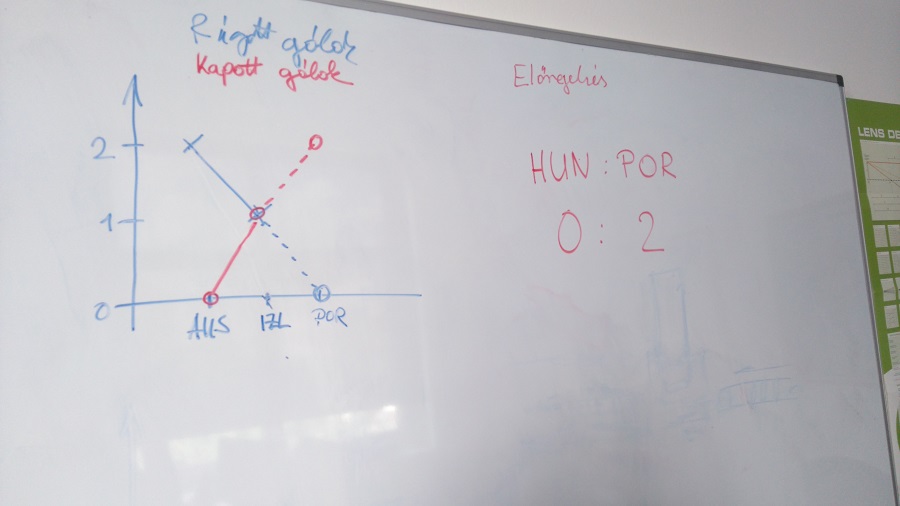 Rúgott gólok
Kapott gólok
2
1
0
AUS
IZL
POR
Előrejelzés
HUN : POR
0 : 2
LENS DE